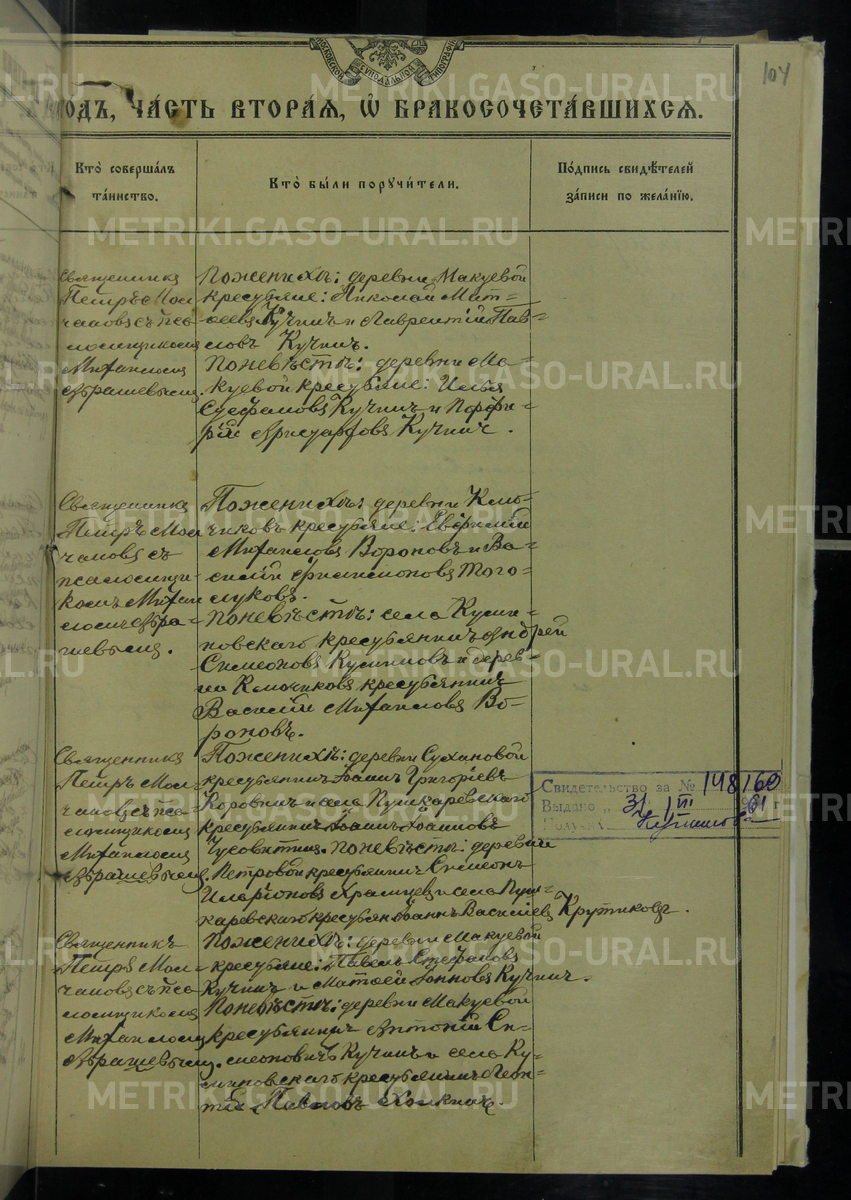 104
МОСКОВСКОЙ СѴНОДАЛЬНОЙ ТИПОГРАФІИ
ГОДЪ, ЧА́СТЬ ВТОРА́Я, Ѡ҆ БРАКОСОЧЕТА́ВШИХСЯ.
Кто̀ соверша́лъ
та́инство.
Кто̀ бы́ли пору́чи́тели.
По́дпись свидѣ́телей
за́писи по жела́нїю.
Священникъ
Петръ Мол
чановъ съ пса
ломщикомъ
Михаиломъ
Абрашевымъ.
По женихѣ: деревни Макуевой
крестьяне: Николай Мат=
ѳеевъ Кучинъ и Лаврентій Пав=
ловъ Кучинъ.
По невѣстѣ: деревни Ма-
куевой крестьяне: Илья
Стефановъ Кучинъ и Порфи-
рій Аристарховъ Кучинъ.
Священникъ
Петръ Мол
чановъ съ
псаломщи-
комъ Михаи
ломъ Абра-
шевымъ.
По женихѣ: деревни Клю-
чиковъ крестьяне: Евфимій
Михаиловъ Вороновъ и Ва-
силій Филимоновъ
По невѣстѣ: села
крестьянинъ Андрей
Симеоновъ и дерев-
ни Ключиковъ крестьянинъ
Василій Михаиловъ Во-
роновъ.
Священникъ
Петръ Мол-
чановъ съ пса
ломщикомъ
Михаиломъ
Абрашевымъ.
По женихѣ: деревни Сухановой
крестьянинъ Іоаннъ Григоріевъ
Коровинъ и села Пушкаревскаго
крестьянинъ Іоаннъ Іоанновъ
По невѣстѣ: деревни
Петровой крестьянинъ Симеонъ
Иларіоновъ Храмцевъ и села Пуш-
каревскаго крестьян. Іоаннъ Василіевъ Крутиковъ.
Свидетельство за № 148160
Выдано „31" III 1961 г
Подпись
Священникъ
Петръ Мол-
чановъ съ пса
ломщикомъ
Михаиломъ
Абрашевымъ.
По женихѣ: деревни Макуевой
крестьяне: Павелъ Стефановъ
Кучинъ и Матѳей Іоанновъ Кучинъ.
По невѣстѣ: деревни Макуевой
крестьянинъ Антоній Си-
меоновичъ Кучинъ и села
крестьянинъ Леон-
тій Павловъ
METRIKI.GASO-URAL.RU